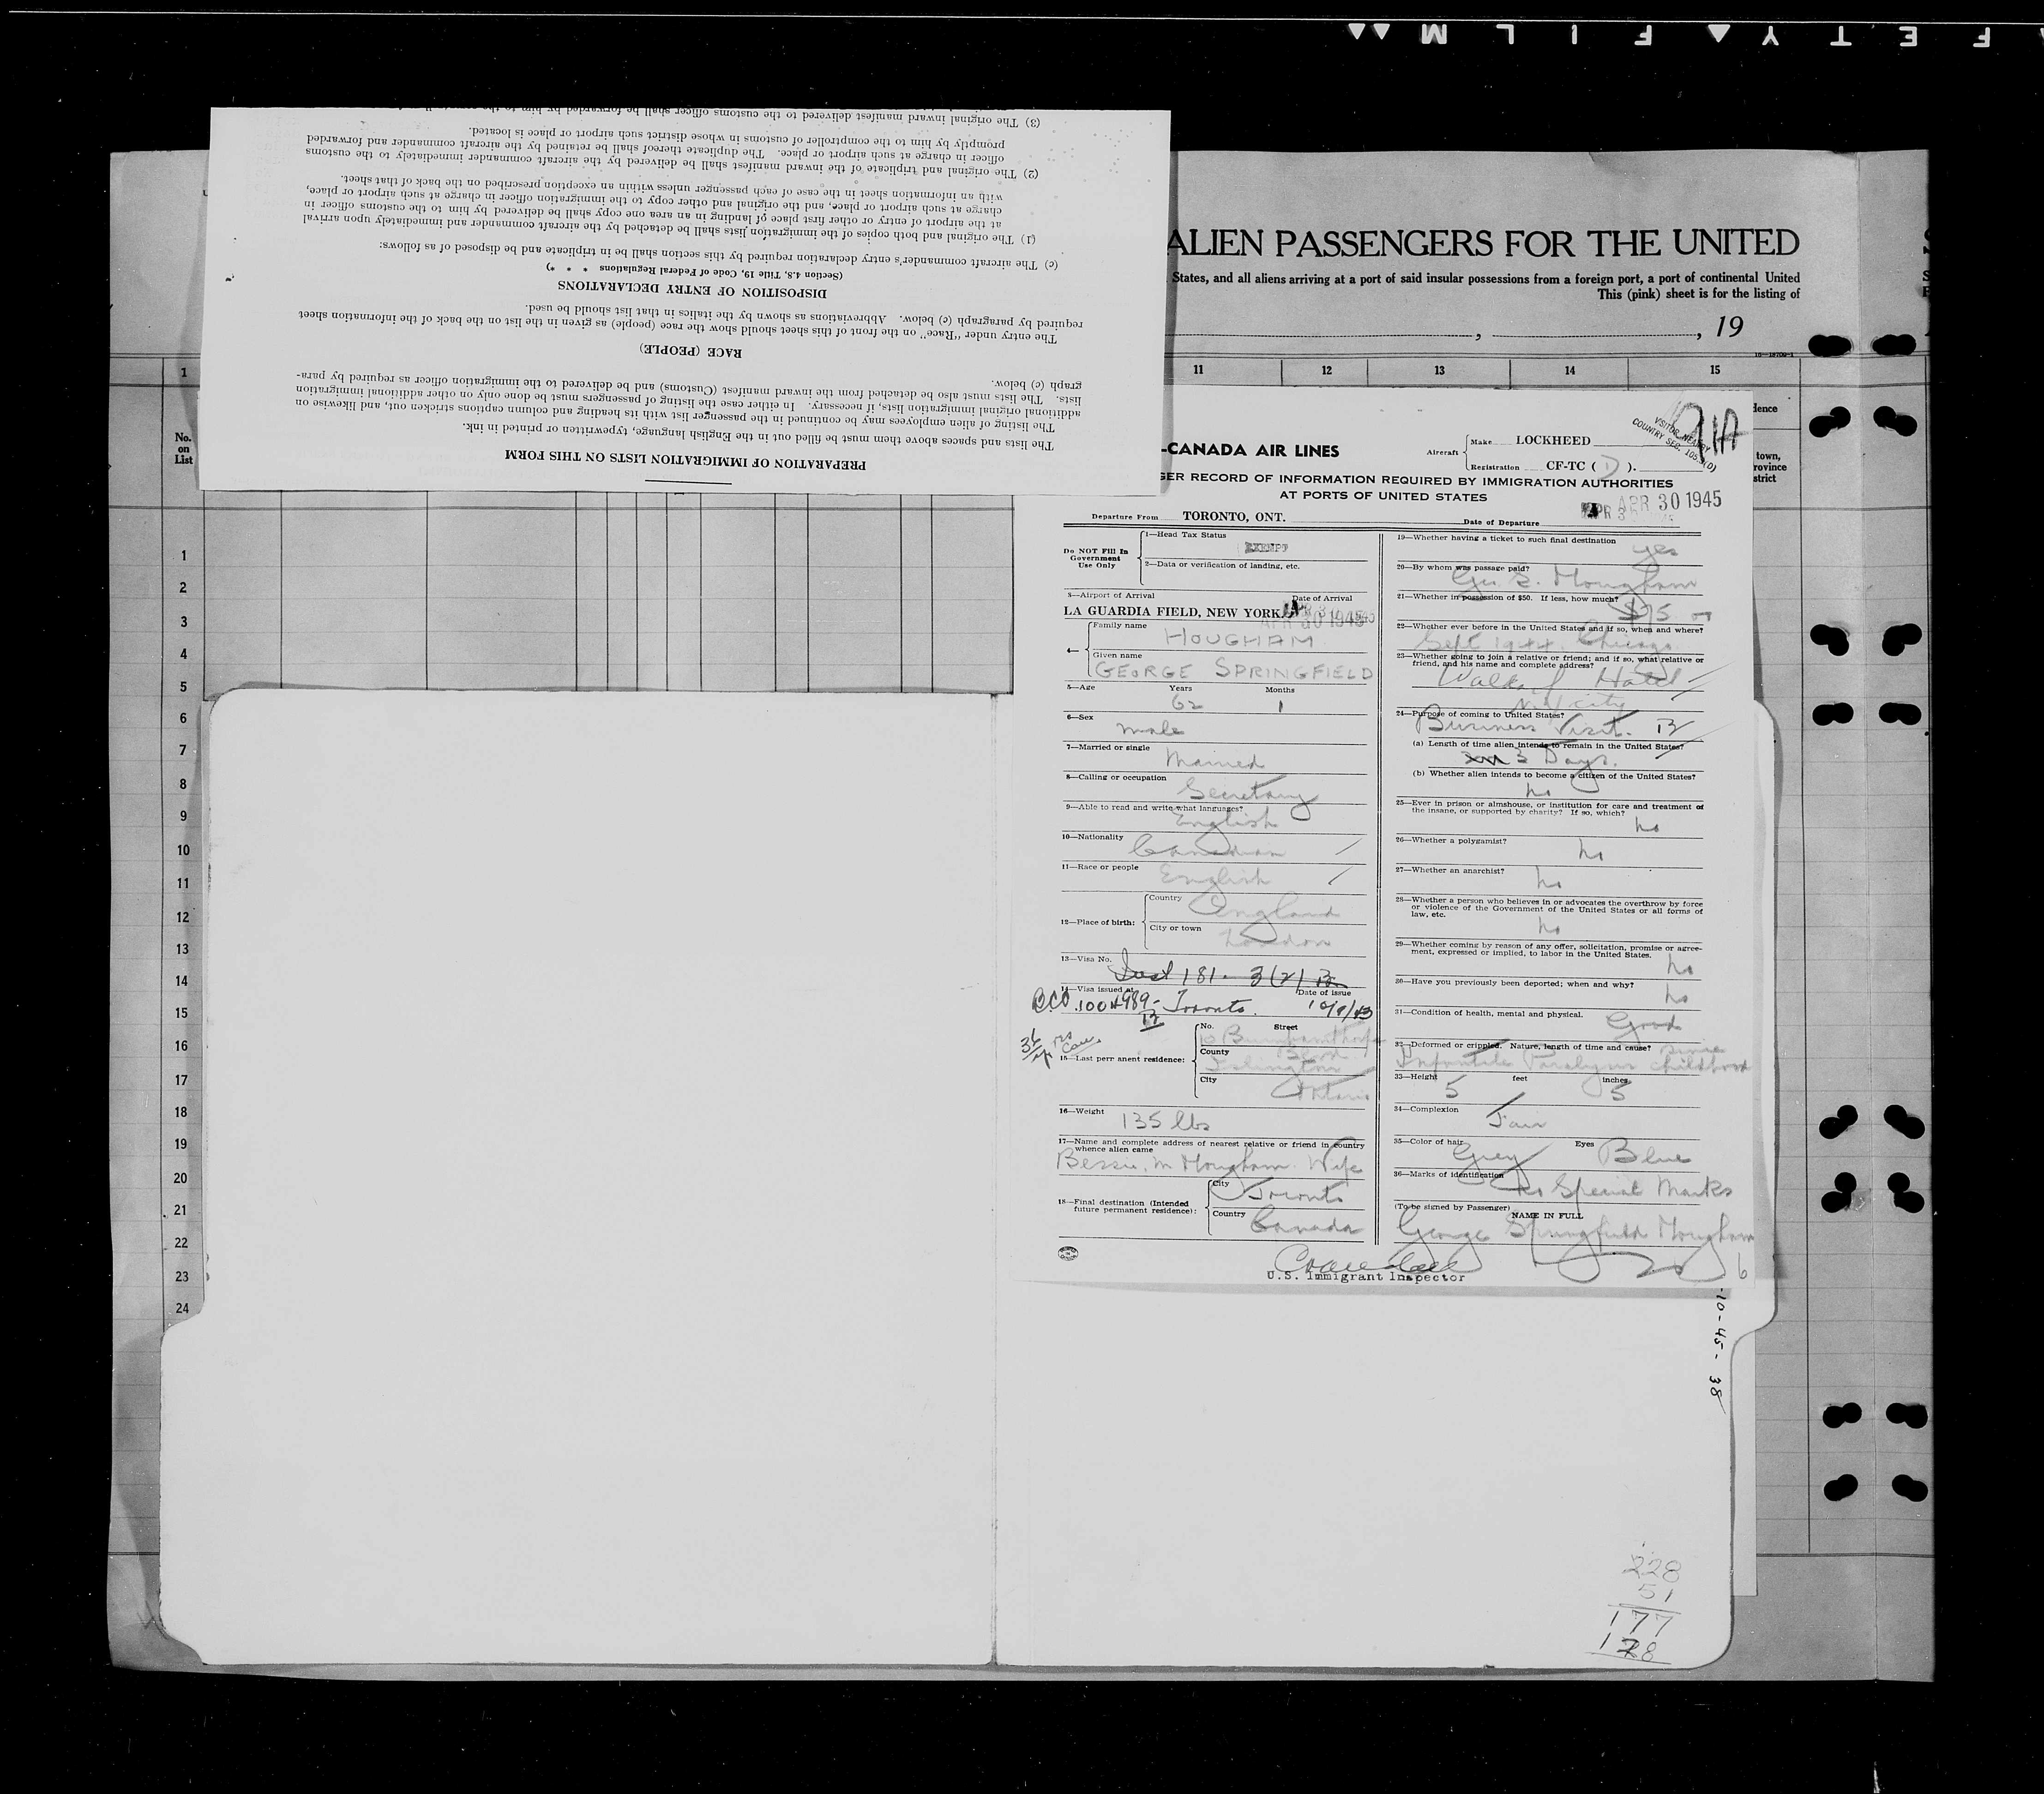 F E T Y F I L M
(3) The original inward manifest delivered to the customs officer shall be forwarded by him to the
promptly by him to the comptroller of customs in whose district such airport or place is located.
officer in charge at such airport or place. The duplicate thereof shall be retained by the aircraft commander and forwarded
(2) The original and triplicate of the inward manifest shall be delivered by the aircraft commander immediately to the customs
with an information sheet in the case of each passenger unless within an exception prescribed on the back of that sheet.
charge at such airport or place, and the original and other copy to the immigration officer in charge at such airport or place,
at the airport of entry or other first place of landing in an area one copy shall be delivered by him to the customs officer in
(1) The original and both copies of the immigration lists shall be detached by the aircraft commander and immediately upon arrival
(c) The aircraft commander's entry declaration required by this section shall be in triplicate and be disposed of as follows:
(Section 4.8, Title 19, Code of Federal Regulations * * *)
DISPOSITION OF ENTRY DECLARATIONS
required by paragraph (c) below. Abbreviations as shown by the italics in that list should be used.
The entry under "Race" on the front of this sheet should show the race (people) as given in the list on the back of the information sheet
RACE (PEOPLE)
graph (c) below.
lists. The lists must also be detached from the inward manifest (Customs) and be delivered to the immigration officer as required by para-
additional original immigration lists, if necessary. In either case the listing of passengers must be done only on other additional immigration
The listing of alien employees may be continued in the passenger list with its heading and column captions stricken out, and likewise on
The lists and spaces above them must be filled out in the English language, typewritten or printed in ink.
PREPARATION OF IMMIGRATION LISTS ON THIS FORM
ALIEN PASSENGERS FOR THE UNITED
States, and all aliens arriving at a port of said insular possessions from a foreign port, a port of continental United
This (pink) sheet is for the listing of
, , 19
1 11 12 13 14 15
No.
on
List
dence
town,
rovince
strict
1
2
3
4
5
6
7
8
9
10
11
12
13
14
15
16
17
18
19
20
21
22
23
24
-CANADA AIR LINES
Aircraft Make LOCKHEED
Registration CF-TC ( ).
VISITOR
COUNTRY SEC.
GER RECORD OF INFORMATION REQUIRED BY IMMIGRATION AUTHORITIES
AT PORTS OF UNITED STATES
Departure From TORONTO, ONT.
Date of Departure APR 30 1945
Do NOT Fill In
Government
Use Only
1—Head Tax Status
EXEMPT
2—Data or verification of landing, etc.
3—Airport of Arrival Date of Arrival
LA GUARDIA FIELD, NEW YORK APR 30 1945
4— Family name
HOUGHAM
Given name
GEORGE SPRINGFIELD
5—Age Years Months
62 1
6—Sex
male
7—Married or single
Married
8—Calling or occupation
Secretary
9—Able to read and write what languages?
English
10—Nationality
Canadian
11—Race or people
English
12—Place of birth:
Country
England
City or town
London
13—Visa No.
181 - 3(2) B
14—Visa issued at Date of issue
BCC 1004989- Toronto.
15—Last permanent residence:
No. Street
County
Islington
City
Ontario
16—Weight
135 lbs
17—Name and complete address of nearest relative or friend in country
whence alien came
Bessie. M Hougham. Wife
18—Final destination (Intended
future permanent residence):
City
Toronto
Country
Canada
19—Whether having a ticket to such final destination
yes
20—By whom was passage paid?
Geo. S. Hougham
21—Whether in possession of $50. If less, how much?
$75
22—Whether ever before in the United States and if so, when and where?
Sept 1944. Chicago.
23—Whether going to join a relative or friend; and if so, what relative or
friend, and his name and complete address?
Hotel
N.Y. city
24—Purpose of coming to United States?
Business Visit. B
(a) Length of time alien intends to remain in the United States?
3 Days.
(b) Whether alien intends to become a citizen of the United States?
no
25—Ever in prison or almshouse, or institution for care and treatment of
the insane, or supported by charity? If so, which?
no
26—Whether a polygamist?
no
27—Whether an anarchist?
no
28—Whether a person who believes in or advocates the overthrow by force
or violence of the Government of the United States or all forms of
law, etc.
no
29—Whether coming by reason of any offer, solicitation, promise or agree-
ment, expressed or implied, to labor in the United States.
no
30—Have you previously been deported; when and why?
no
31—Condition of health, mental and physical.
Good
32—Deformed or crippled. Nature, length of time and cause?
Infantile Paralysis since childhood
33—Height feet inches
5 5
34—Complexion
Fair
35—Color of hair Eyes
Grey Blue
36—Marks of identification
no Special Marks
(To be signed by Passenger) NAME IN FULL
George Springfield Hougham
U.S. Immigrant Inspector
6
-10-45-38
228
51
177
128